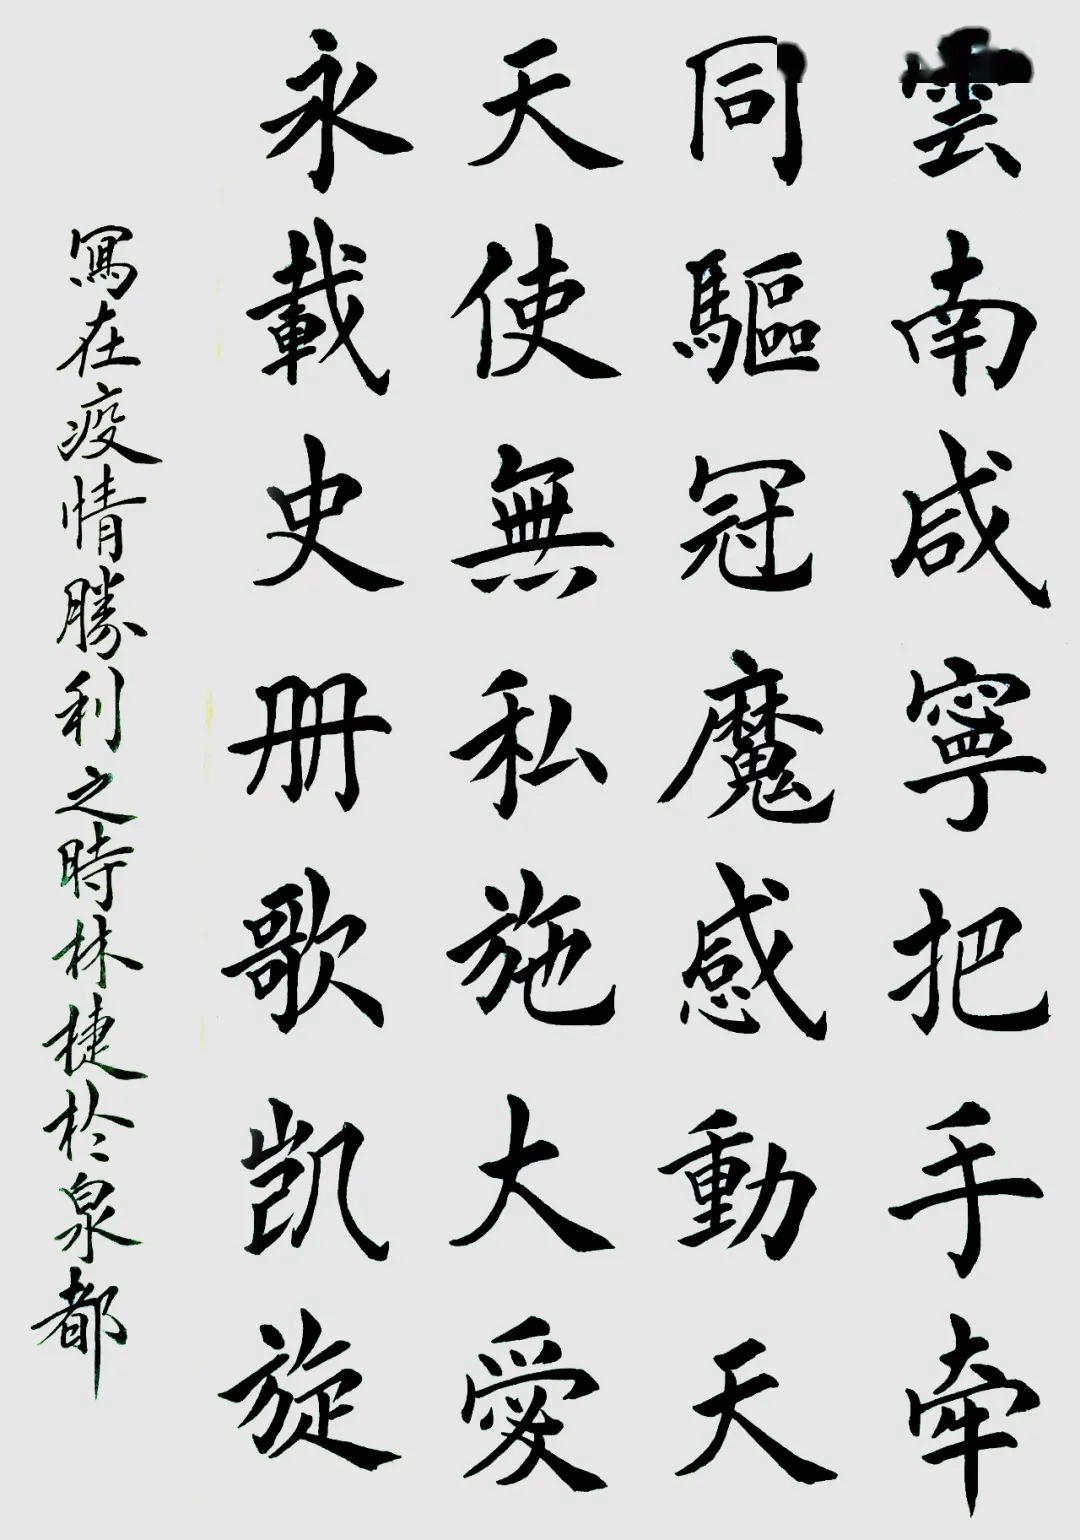 雲南咸寧把手牵
同驅冠魔感動天
天使無私施大愛
永載史册歌凱旋
寫在疫情勝利之時林捷於泉都